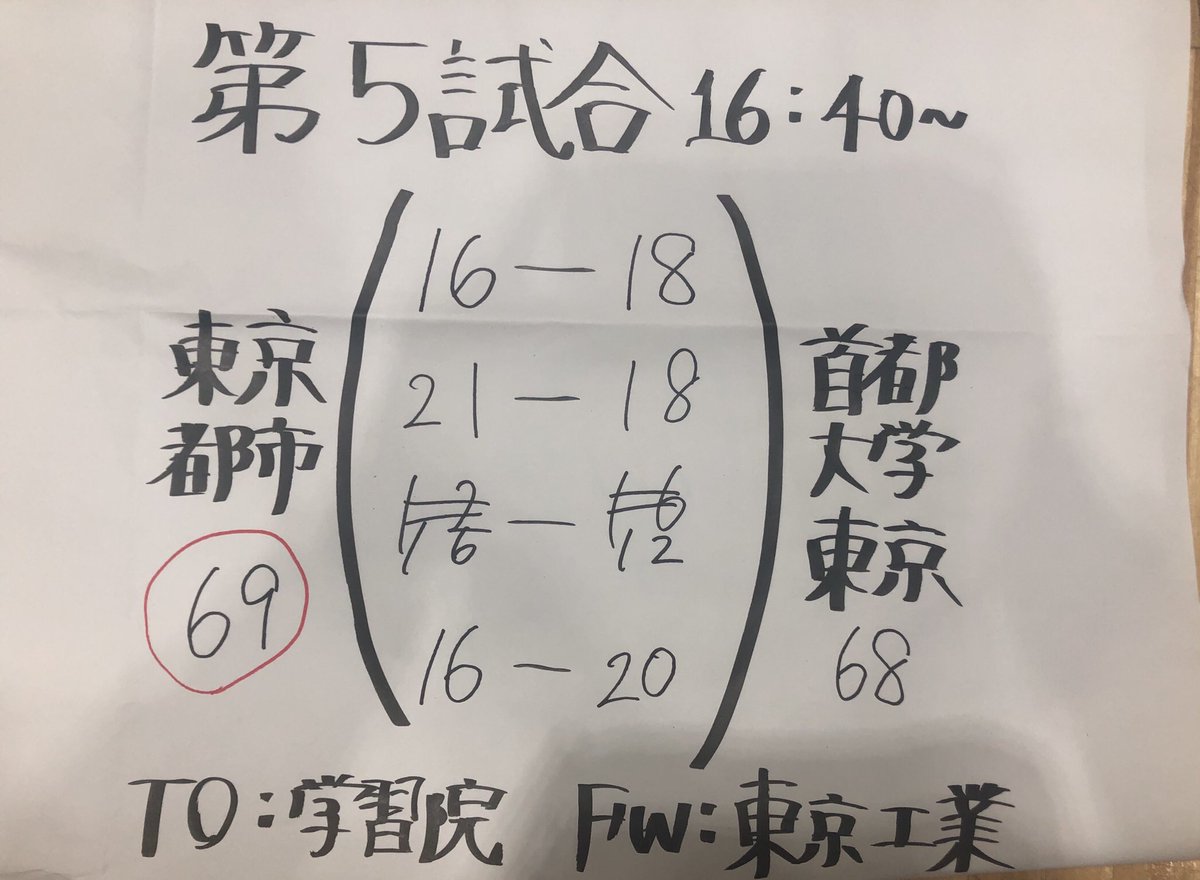 第5試合 16:40~
16 - 18
21 - 18
16 - 12
16 - 20
東京
都市
69
首都
大学
東京
68
TO:学習院 F/W:東京工業